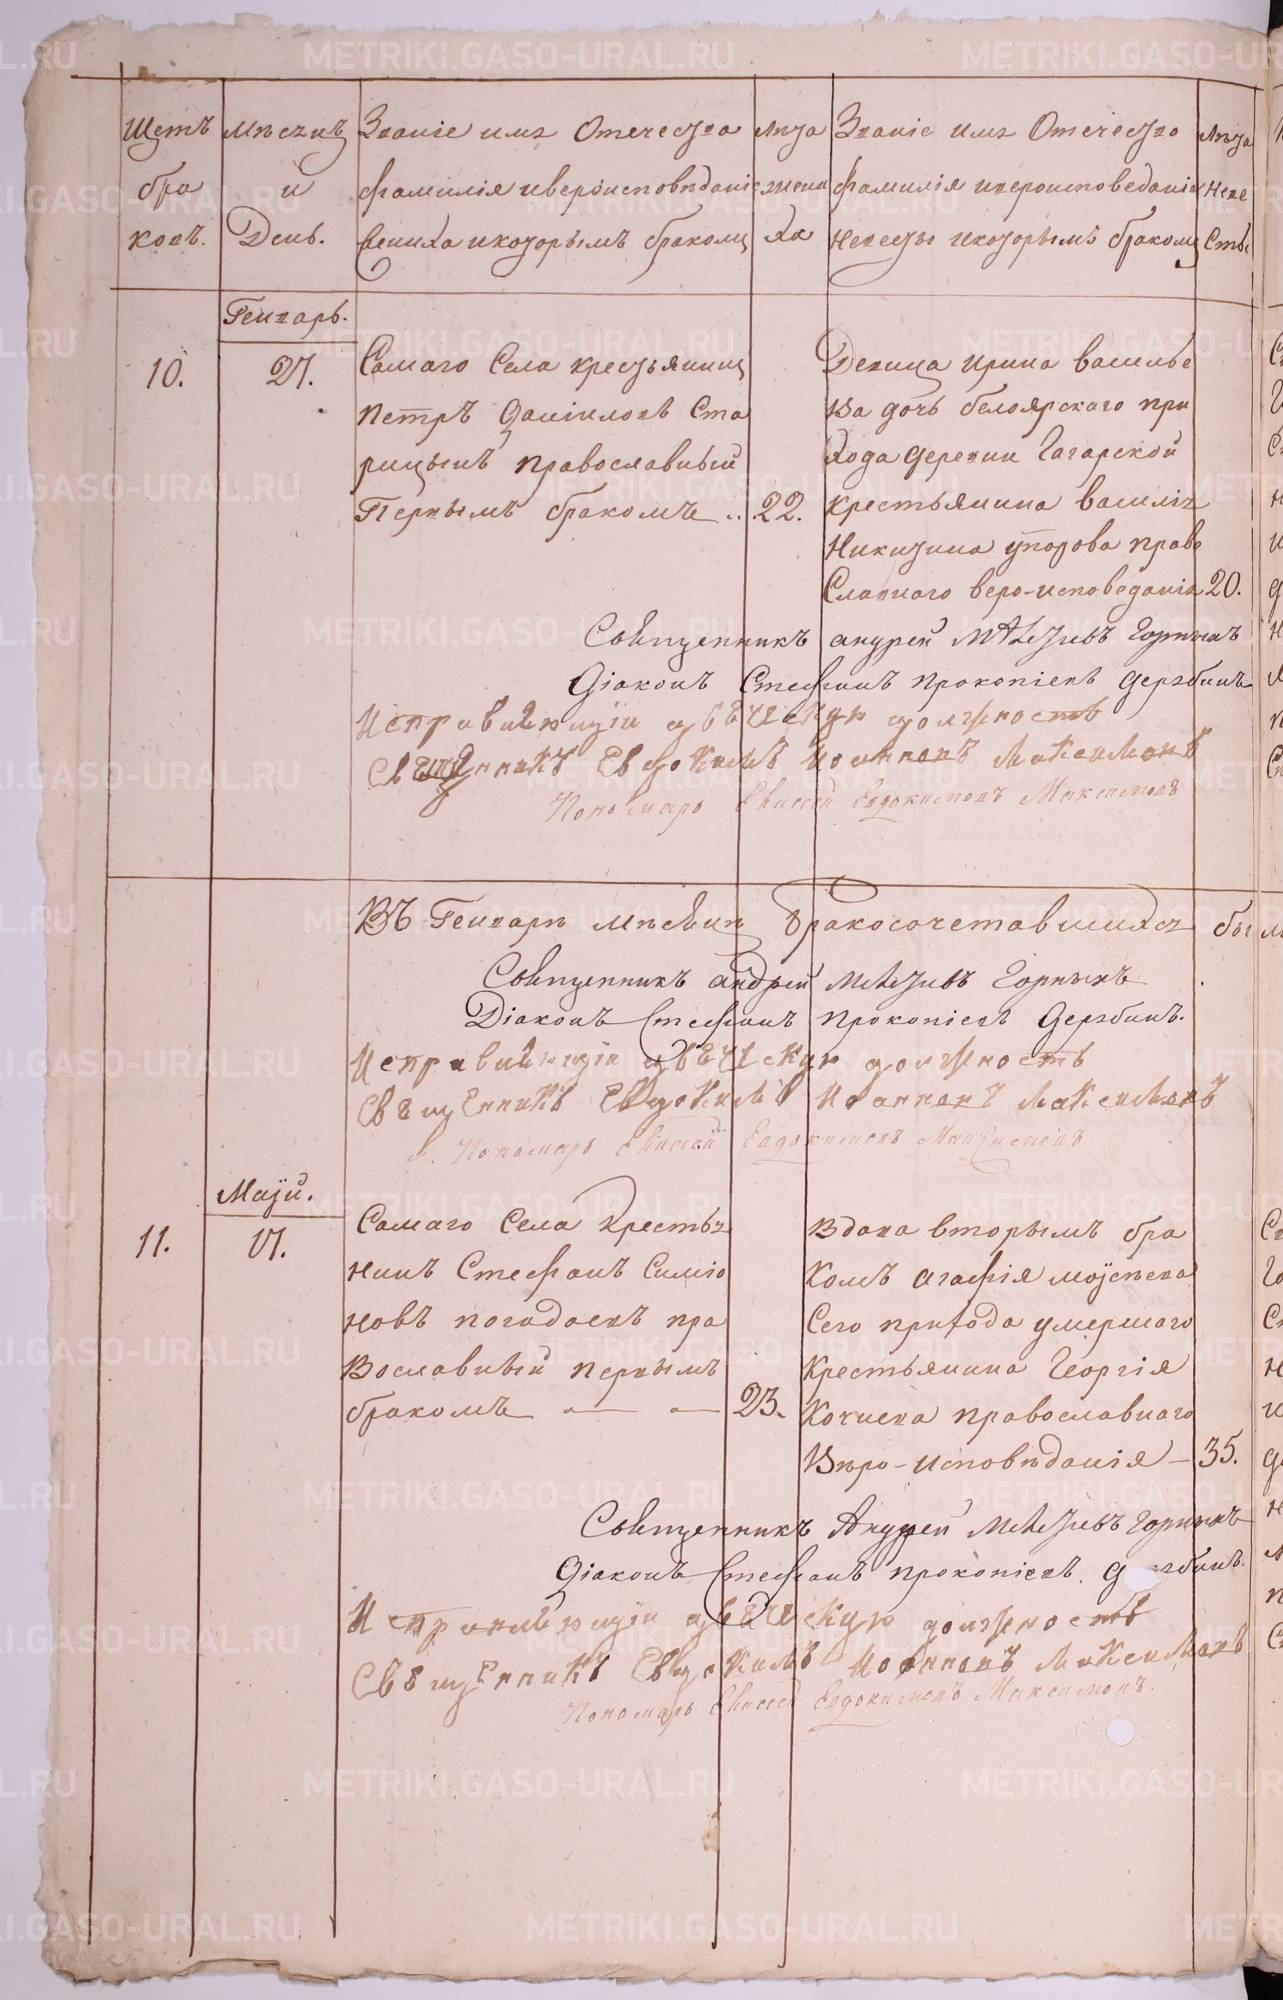 Щетъ
бра
ковъ.
Мѣсяцъ
и
День.
Званіе имя Отечество
фамилія и вероисповѣданіе
жениха и которымъ бракомъ
Лѣта
жени
ха
Званіе имя Отечество
фамилія и вероисповеданіе
невесты и которымъ бракомъ
Лѣта
неве
сты
Генварь.
10.
27.
Самаго Села крестьянинъ
петръ Даніиловъ Ста
рицынъ православный
Первымъ бракомъ ..
22.
Девица ирина василье
ва дочь белоярского при
хода деревни Гагарской
крестьянина василія
Никитина упорова право
Славнаго веро-исповеданія
20.
Священникъ андрей Матвѣевъ Горныхъ
Діаконъ Стефанъ прокопіевъ Дерябинъ
Исправляющій дьяческую должность
Священникъ Евдокимъ Иоанновъ Максимовъ
Пономарь Елисей Евдокимовъ Максимовъ
Въ Генварѣ мѣсяцѣ бракосочетавшихся бы
Священникъ андрей Матвѣевъ Горныхъ
Діаконъ Стефанъ Прокопіевъ Дерябинъ.
Исправляющій дьяческую должность
Священникъ Евдокимъ Иоанновъ Максимовъ
Пономарь Елисей Евдокимовъ Максимовъ
Маій.
11.
17.
Самаго Села Крестья
нинъ Стефанъ Симіо
новъ погадаевъ пра
вославный первымъ
бракомъ
23.
Вдова вторымъ бра
комъ агафія моѵсеева
Сего прихода умершаго
Крестьянина Георгія
Кочнева православнаго
Вѣро-исповѣданія
35.
Священникъ Андрей Матвѣевъ Горныхъ
Діаконъ Стефанъ прокопіевъ Дерябинъ.
Исправляющій дьяческую должность
Священникъ Евдокимъ Иоанновъ Максимовъ
Пономарь Елисей Евдокимовъ Максимовъ.